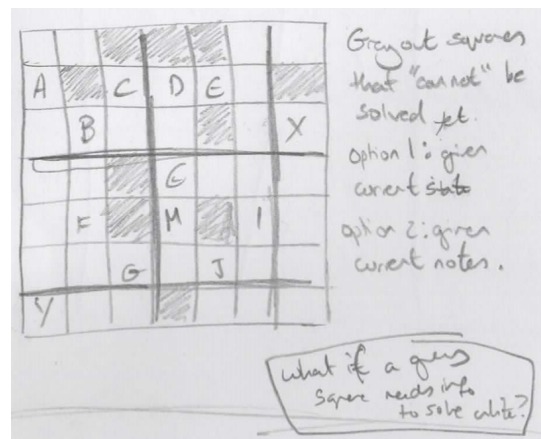 A C D E
B X
E
F M I
G J
Y
Gray out squares
that "cannot" be
solved yet.
option 1: given
current state
option 2: given
current notes.
what if a grey
square needs info
to solve white?